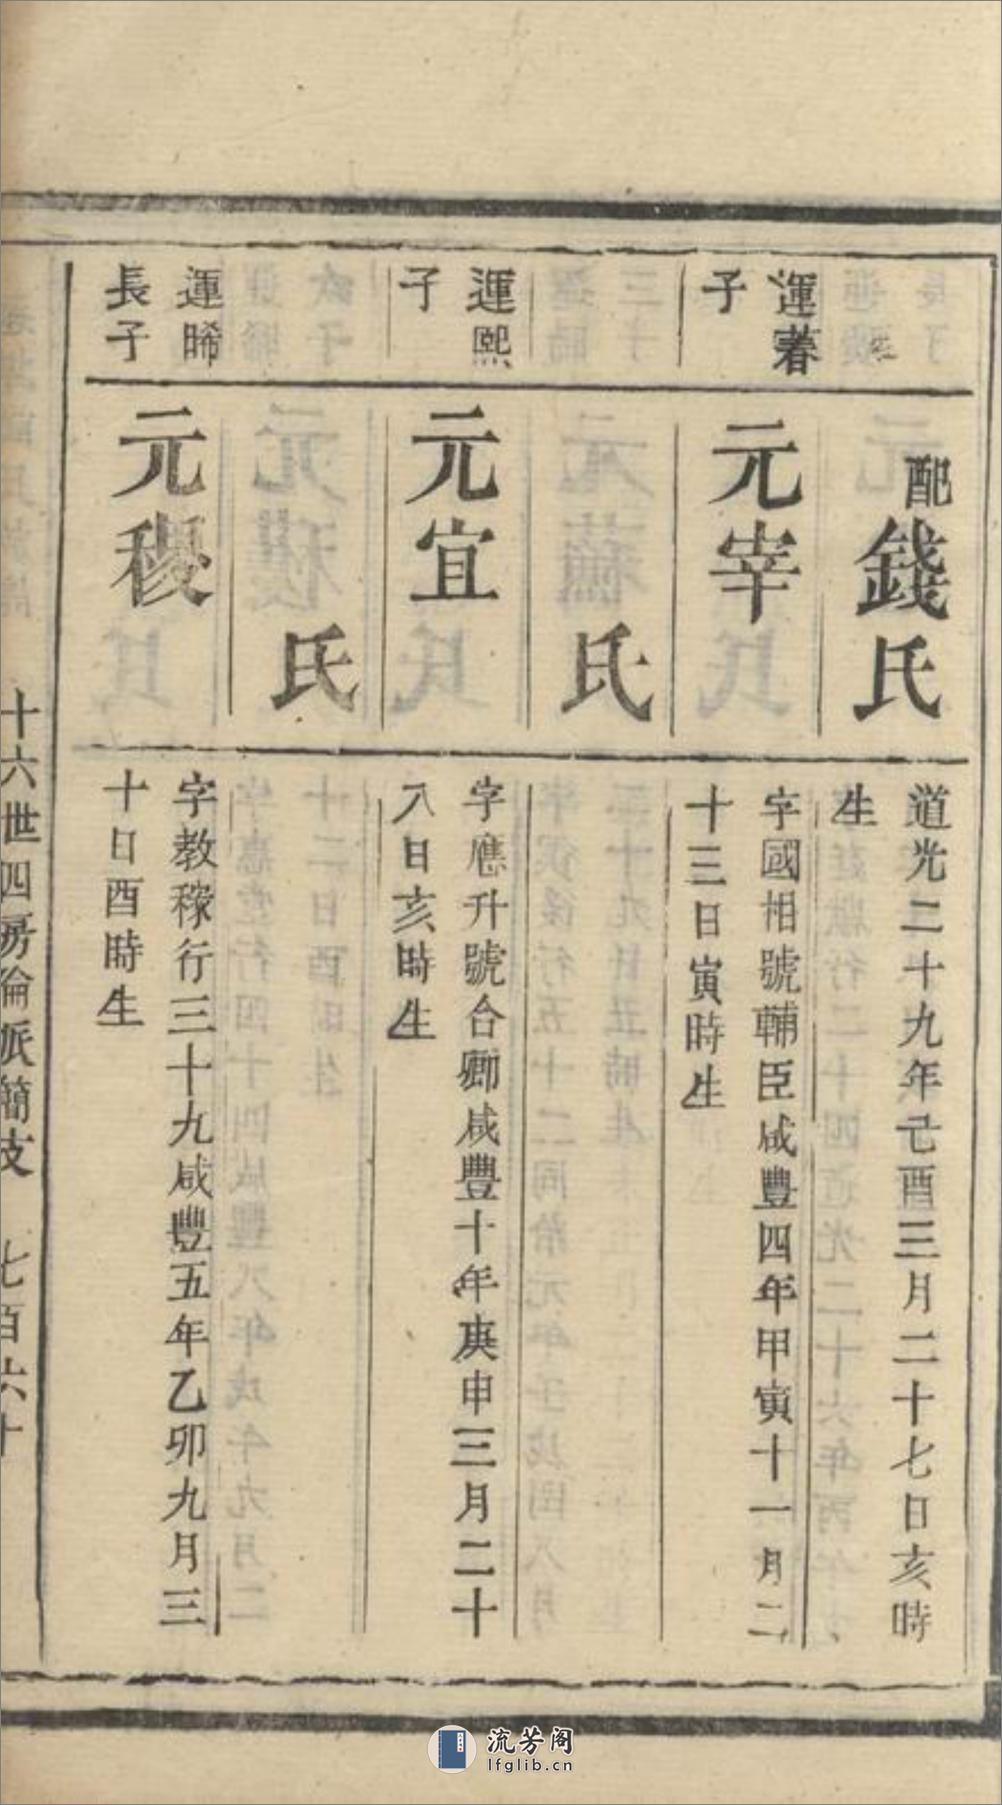 配錢氏
道光二十九年己酉三月二十七日亥時
生
運春
子
元宰
字國相號輔臣咸豐四年甲寅十一月二
十三日寅時生
氏
運熙
子
元宜
字應升號合卿咸豐十年庚申三月二十
八日亥時生
氏
運晞
長子
元稷
字教稼行三十九咸豐五年乙卯九月三
十日酉時生
十六世四房倫派簡支 七百六十
流芳阁
lfglib.cn